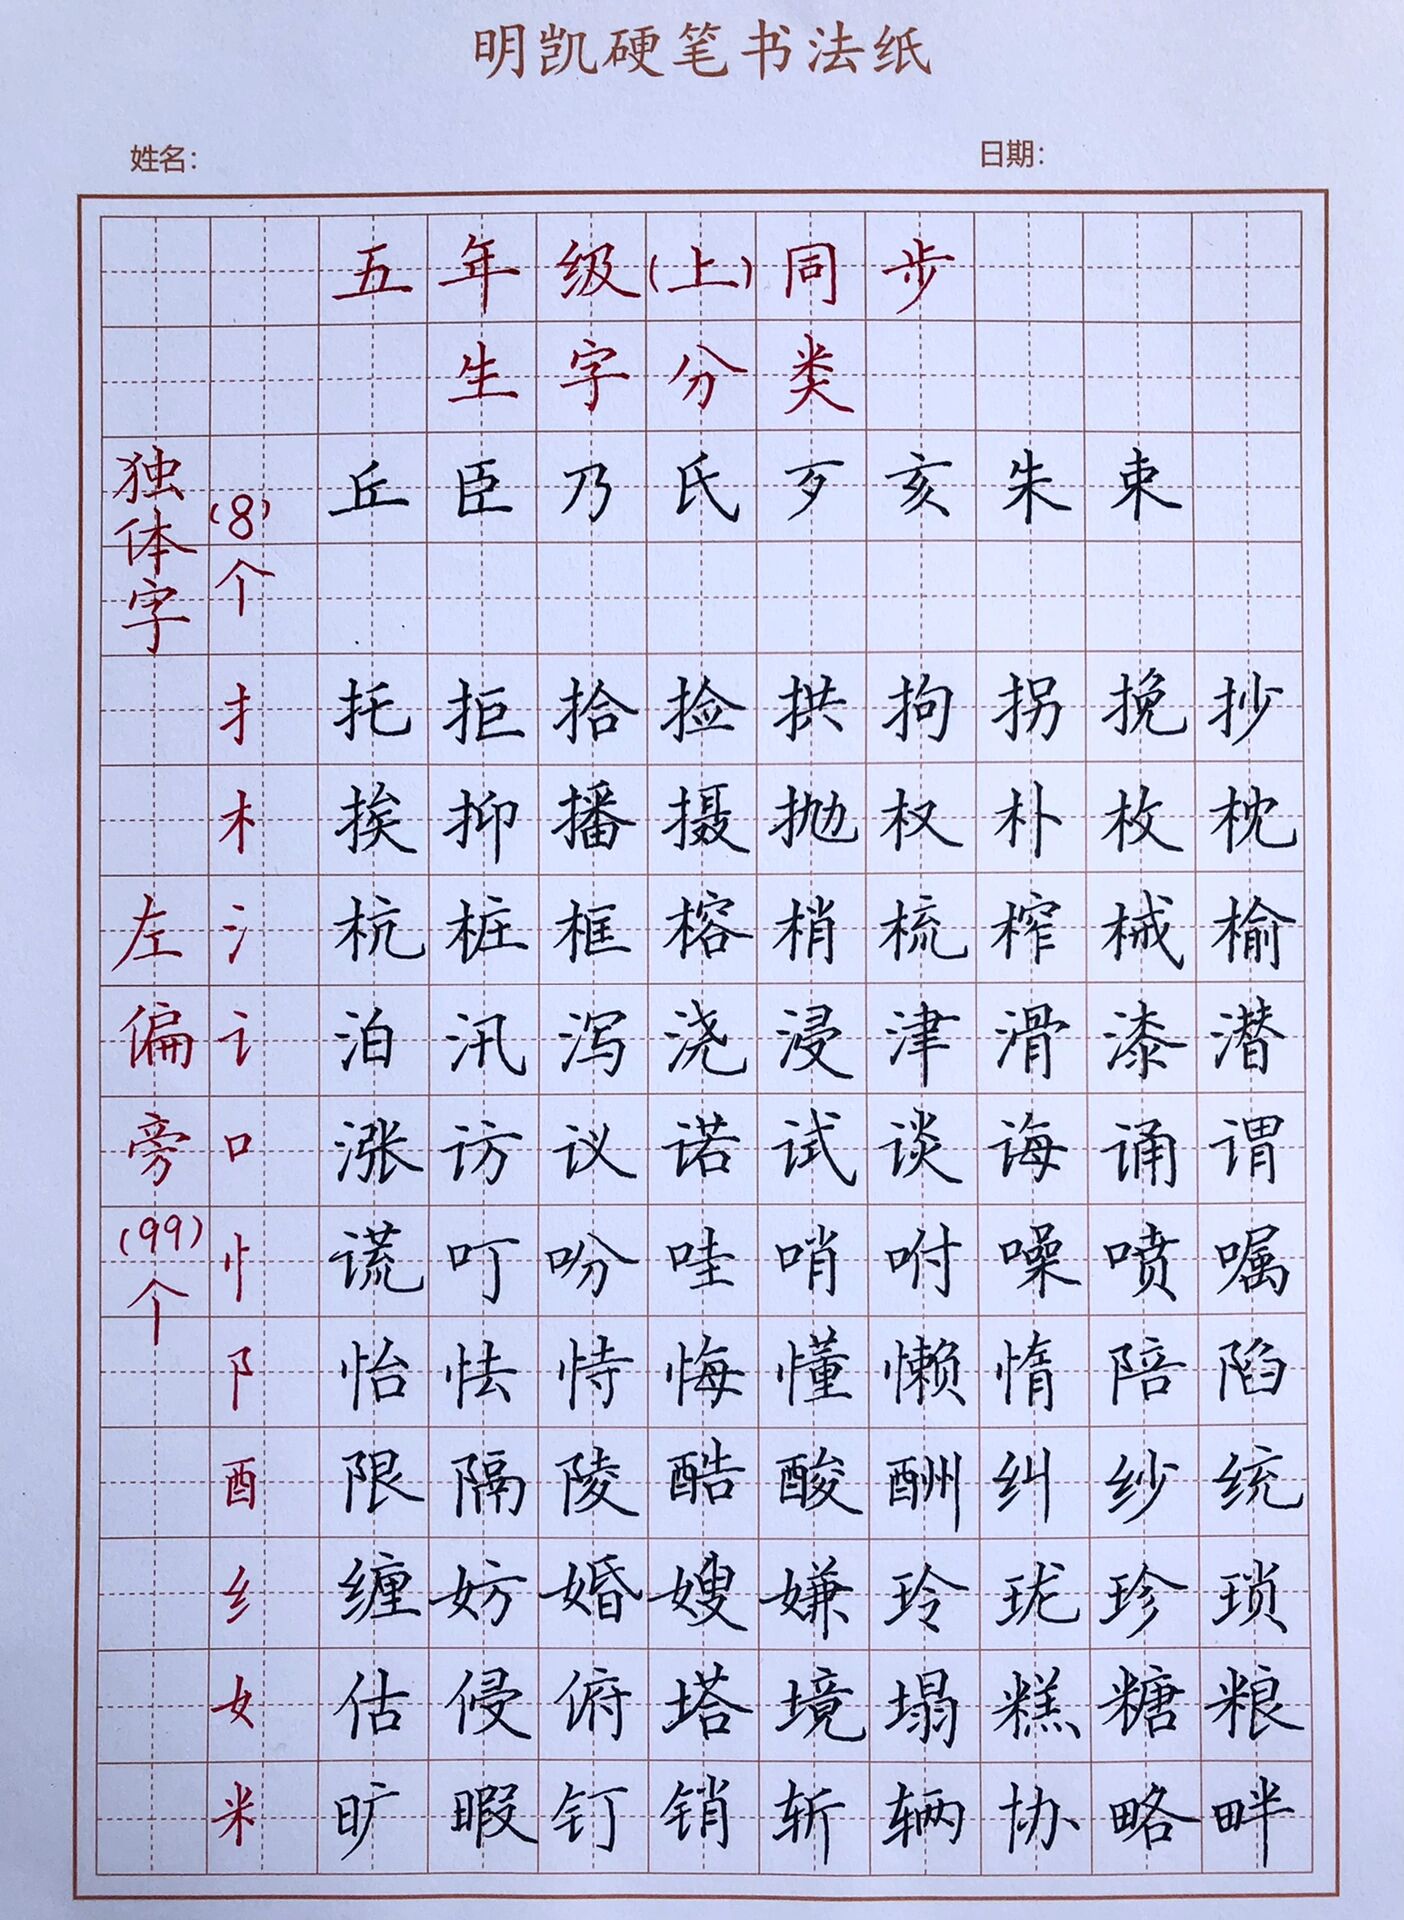 明凯硬笔书法纸
姓名： 日期：
五年级(上)同步
生字分类
独体字 (8)个 丘臣乃氏歹亥朱束
左偏旁(99)个
扌 托拒拾捡拱拘拐挽抄
木 挨抑播摄抛权朴枚枕
氵 杭桩框榕梢梳榨械榆
讠 泊汛泻浇浸津滑漆潜
口 涨访议诺试谈诲诵谓
忄 谎叮吩哇哨咐噪喷嘱
阝 怡怯恃悔懂懒惰陪陷
酉 限隔陵酷酸酬纠纱统
纟 缠妨婚嫂嫌玲珑珍琐
女 估侵俯塔境塌糕糖粮
米 旷暇钉销斩辆协略畔